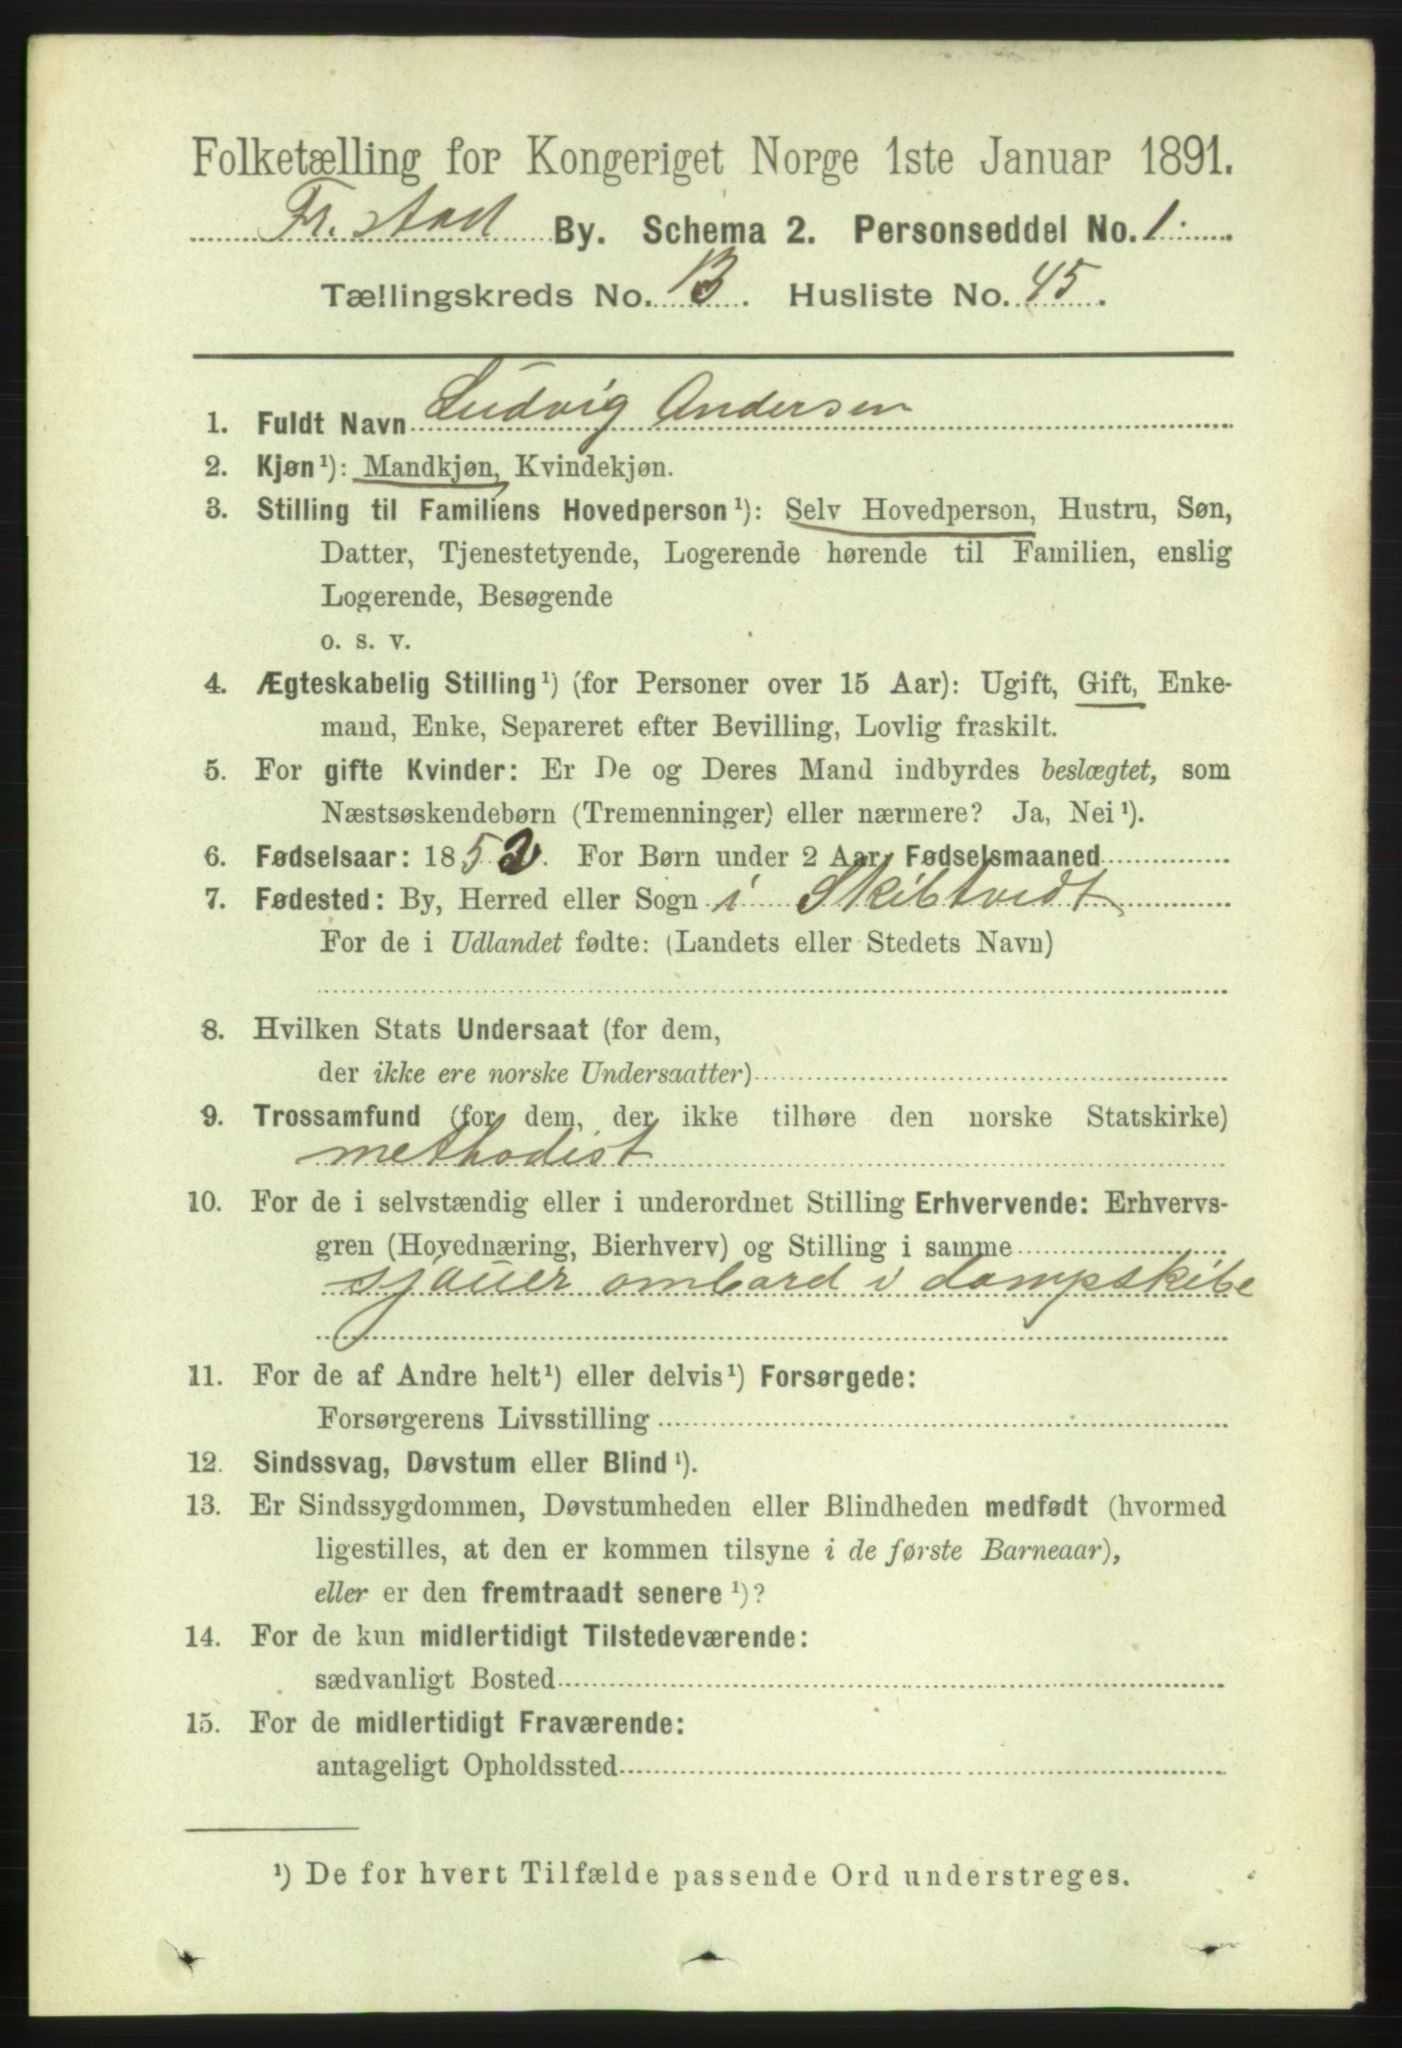 Folketælling for Kongeriget Norge 1ste Januar 1891.
Fr.stad By. Schema 2. Personseddel No. 1.
Tællingskreds No. 13. Husliste No. 45.
1. Fuldt Navn Ludvig Andersen
2. Kjøn¹): Mandkjøn, Kvindekjøn.
3. Stilling til Familiens Hovedperson¹): Selv Hovedperson, Hustru, Søn,
Datter, Tjenestetyende, Logerende hørende til Familien, enslig
Logerende, Besøgende
o. s. v.
4. Ægteskabelig Stilling¹) (for Personer over 15 Aar): Ugift, Gift, Enke-
mand, Enke, Separeret efter Bevilling, Lovlig fraskilt.
5. For gifte Kvinder: Er De og Deres Mand indbyrdes beslægtet, som
Næstsøskendebørn (Tremenninger) eller nærmere? Ja, Nei¹).
6. Fødselsaar: 1852. For Børn under 2 Aar, Fødselsmaaned
7. Fødested: By, Herred eller Sogn i Skibtvedt
For de i Udlandet fødte: (Landets eller Stedets Navn)
8. Hvilken Stats Undersaat (for dem,
der ikke ere norske Undersaatter)
9. Trossamfund (for dem, der ikke tilhøre den norske Statskirke)
methodist
10. For de i selvstændig eller i underordnet Stilling Erhvervende: Erhvervs-
gren (Hovednæring, Bierhverv) og Stilling i samme
sjauer ombord i dampskibe
11. For de af Andre helt¹) eller delvis¹) Forsørgede:
Forsørgerens Livsstilling
12. Sindssvag, Døvstum eller Blind¹).
13. Er Sindssygdommen, Døvstumheden eller Blindheden medfødt (hvormed
ligestilles, at den er kommen tilsyne i de første Barneaar),
eller er den fremtraadt senere¹)?
14. For de kun midlertidigt Tilstedeværende:
sædvanligt Bosted
15. For de midlertidigt Fraværende:
antageligt Opholdssted
¹) De for hvert Tilfælde passende Ord understreges.